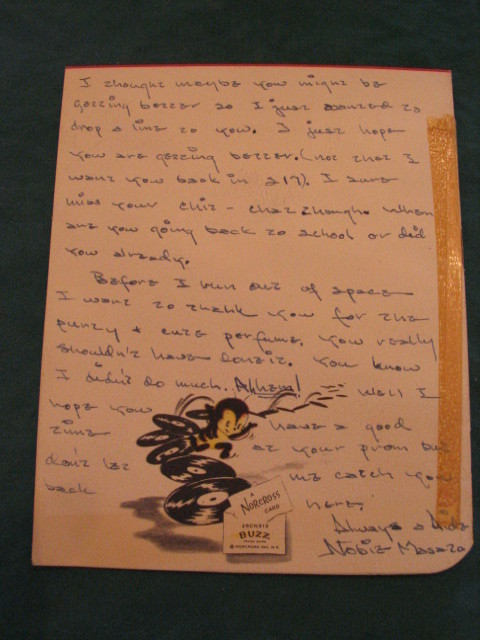 I thought maybe you might be
getting better so I just wanted to
drop a line to you. I just hope
you are getting better. (not that I
want you back in 217). I sure
miss your chit-chat though. When
are you going back to school or did
you already.
Before I run out of space
I want to thank you for the
purty + cute perfume. You really
shouldn't have done it. You know
I didn't do much. Ahhem! Well I
hope you have a good
time at your prom but
don't let me catch you
back here.
Always
Nobie
A
NORCROSS
CARD
BUZZ